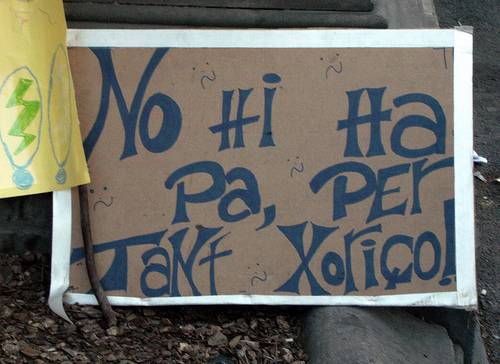 No Hi Ha
Pa, PEr
TaNt Xoriço!